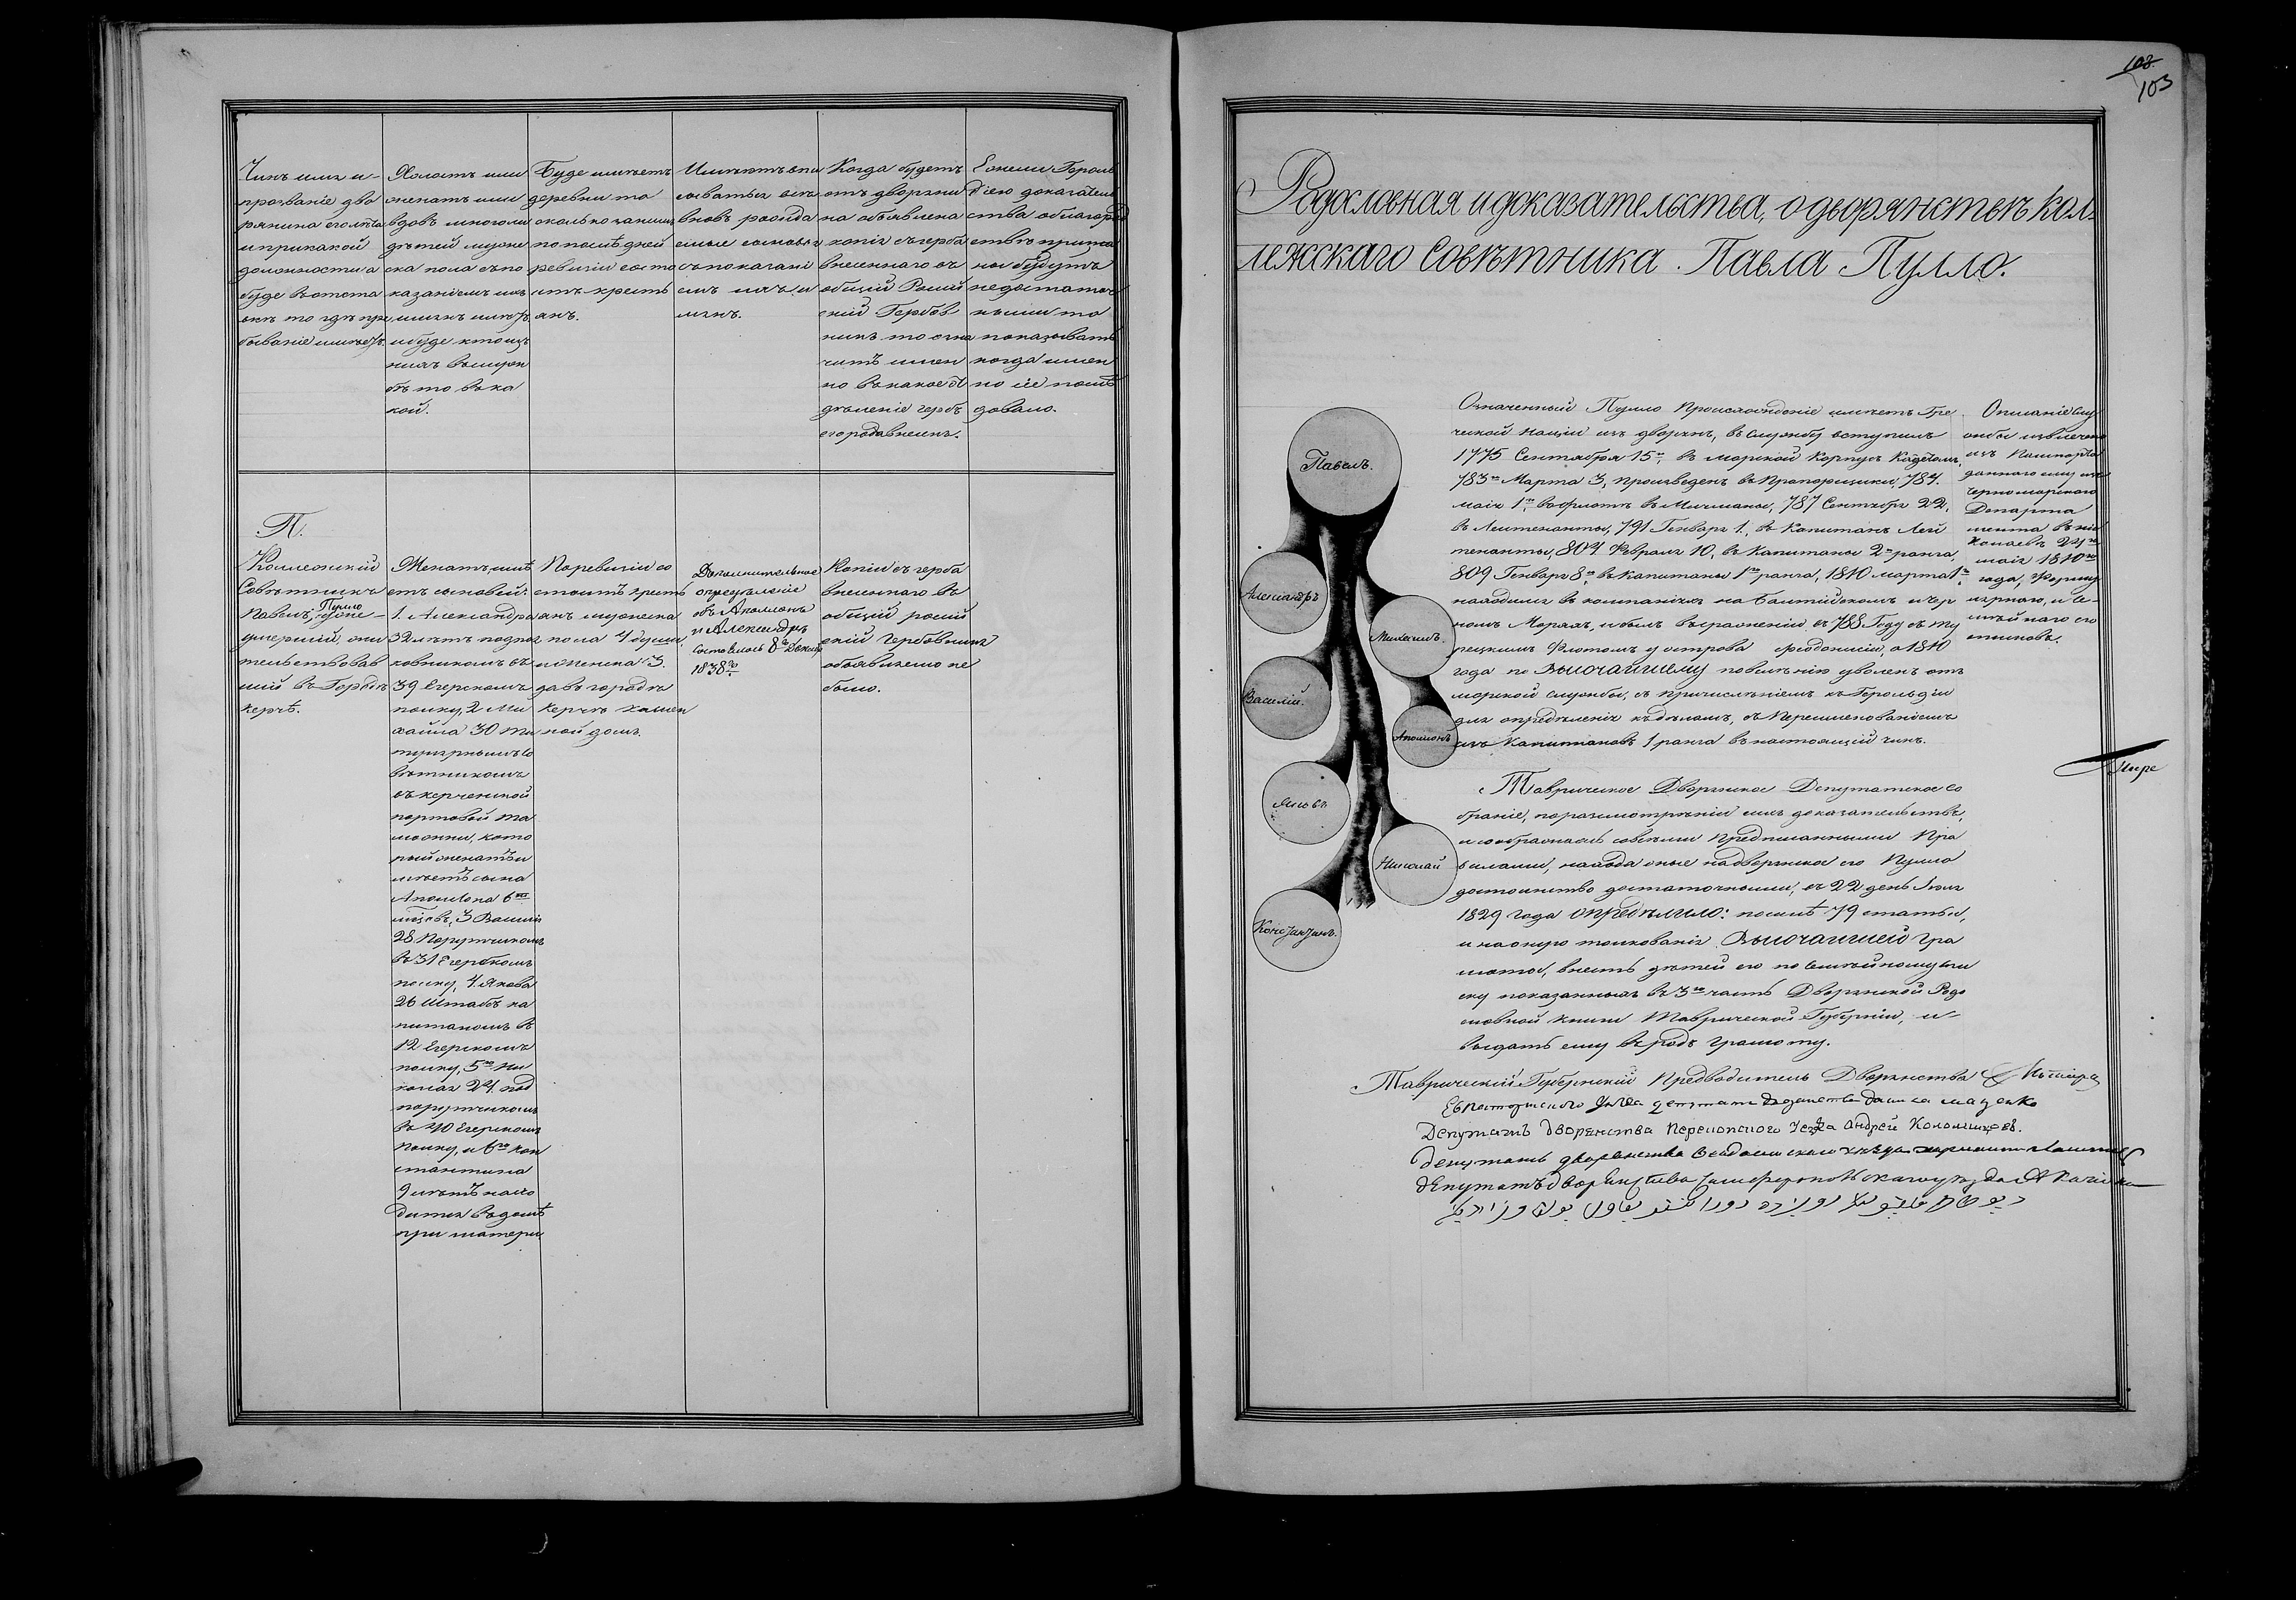 Чинъ имя и-
прозваніе дво
рянина его лѣта
и при какой
должности а
буде въ отста
вкѣ то гдѣ пре
бываніе имѣетъ.
Холостъ или
женатъ или
вдовъ много ли
дѣтей муже
ска пола съ по
казаніемъ ихъ
имянъ и лѣтъ
и буде кто изъ
нихъ въ служ
бѣ то въ ка
кой.
Буде имѣетъ
деревни то
сколько за нимъ
по послѣдней
ревизіи состо
итъ кресть
янъ.
Имѣютъ впи
сываться в
вновь рожда
емые сыновья
съ показані
емъ ихъ и
мянъ.
Когда будетъ
отъ дворяни
на объявлена
копія съ герба
внесеннаго въ
общій Россій
скій Гербов
никъ то озна
чить имен
но въ какое от
дѣленіе гербъ
его рода внесенъ.
Ежели Героль
діею доказатель
ства о благород
ствѣ призна
ны будутъ
недостаточ
ными то
показывать
когда имен
но сіе послѣ
довало.
П.
Коллежскій
Совѣтникъ
Павелъ Пулло,
умершій, жи
тельствовав
шій въ Городѣ
Керчѣ.
Женатъ, имѣ
етъ сыновей:
1. Александра
32 лѣтъ подпол
ковникомъ въ
39 Егерскомъ
полку, 2 Ми
хайла 30 ти
тулярнымъ со
вѣтникомъ
въ керченской
портовой та
можни, кото
рый женатъ и
имѣетъ сына
Аполлона 6
мѣсяцевъ, 3 Василія
28 Поручикомъ
въ 31 Егерскомъ
полку, 4 Якова
26 Штабсъ ка
питаномъ въ
12 Егерскомъ
полку, 5 Ни
колая 24 под
поручикомъ
въ 40 Егерскомъ
полку, и 6 кон
стантина
9 лѣтъ нахо
дится въ домѣ
при матери
По ревизіи со
стоитъ кресть
янъ мужеска
пола 4 души,
и женска 3.
да въ городѣ
Керчѣ камен
ной домъ.
Дополнительное
опредѣленіе
объ Аполлонѣ
и Александрѣ
состоялось 8 Декабря
1838
Копіи съ герба
внесеннаго въ
общій россій
скій Гербовникъ
объявлено не
было.
103
Родословная и доказательства, о дворянствѣ кол-
лежскаго Совѣтника. Павла Пулло.
Павелъ.
Александръ
Михаилъ.
Василій.
Аполлонъ
Яковъ
Николай
Константинъ.
Означенный Пулло происхожденіе имѣетъ Гре
ческой націи изъ дворянъ, въ службу вступилъ
1775 Сентября 15, въ морской Корпусъ Кадетомъ,
783 Марта 3, произведенъ въ Прапорщики, 784.
маія 1 во флотъ въ Мичманы, 787 Сентября 22,
въ Лейтенанты, 791 Генваря 1, въ Капитанъ Лей
тенанты, 804 Февраля 10, въ Капитаны 2 ранга,
809 Генваря 8 въ Капитаны 1 ранга, 1810 марта 1
находился в компаніяхъ на Балтійскомъ и Чер
номъ Моряхъ, и былъ въ сраженіи въ 788 Году съ Ту
рецкимъ Флотомъ у острова Фидониси, а 1810
года по Высочайшему повелѣнію уволенъ отъ
морской службы, съ причисленіемъ къ Герольдіи
для опредѣленія къ дѣламъ, съ переименованіемъ
изъ Капитановъ 1 ранга въ настоящій чинъ.
Описаніе слу
жбы извлечено
изъ Пашпорта
даннаго ему изъ
Черноморскаго
Департа
мента въ ни
колаевѣ 24
маія 1810
года, Форму
лярнаго, и се-
мѣйнаго его
списковъ.
Таврическое Дворянское Депутатское со
браніе, по разсмотрѣніи сихъ доказательствъ,
и сообразнаясь со всѣми Предписанными Пра
вилами, находя оные на дворянское его Пулло
достоинство достаточными, въ 22 день Іюля
1829 года опредѣлило: послѣ 79 статьи,
и на оную толкованія Высочайшей гра
моты, внесть дѣтей его по семѣйному спи
ску показанныхъ въ 3 часть Дворянской Родо
словной книги Таврической Губерніи, и
выдать ему въ родъ грамоту.
Таврическій Губернскій Предводитель Дворянства
Депутатъ дворянства Перекопского Уезда Андрей Коломийцовъ.